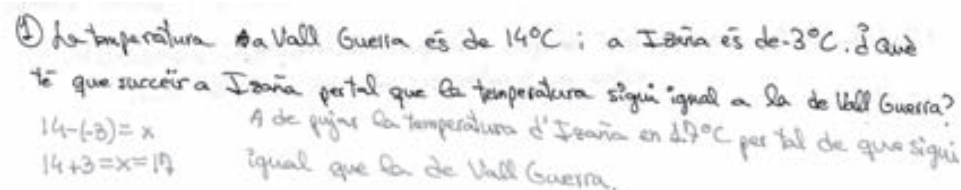 ① La temperatura a Vall Guerra és de 14°C i a Izaña és de -3°C. ¿Què
té que succeïr a Izaña per tal que la temperatura sigui igual a la de Vall Guerra?
14-(-3)= x
14+3=x=17
A de pujar la temperatura d'Izaña en 17°C per tal de que sigui
igual que la de Vall Guerra.